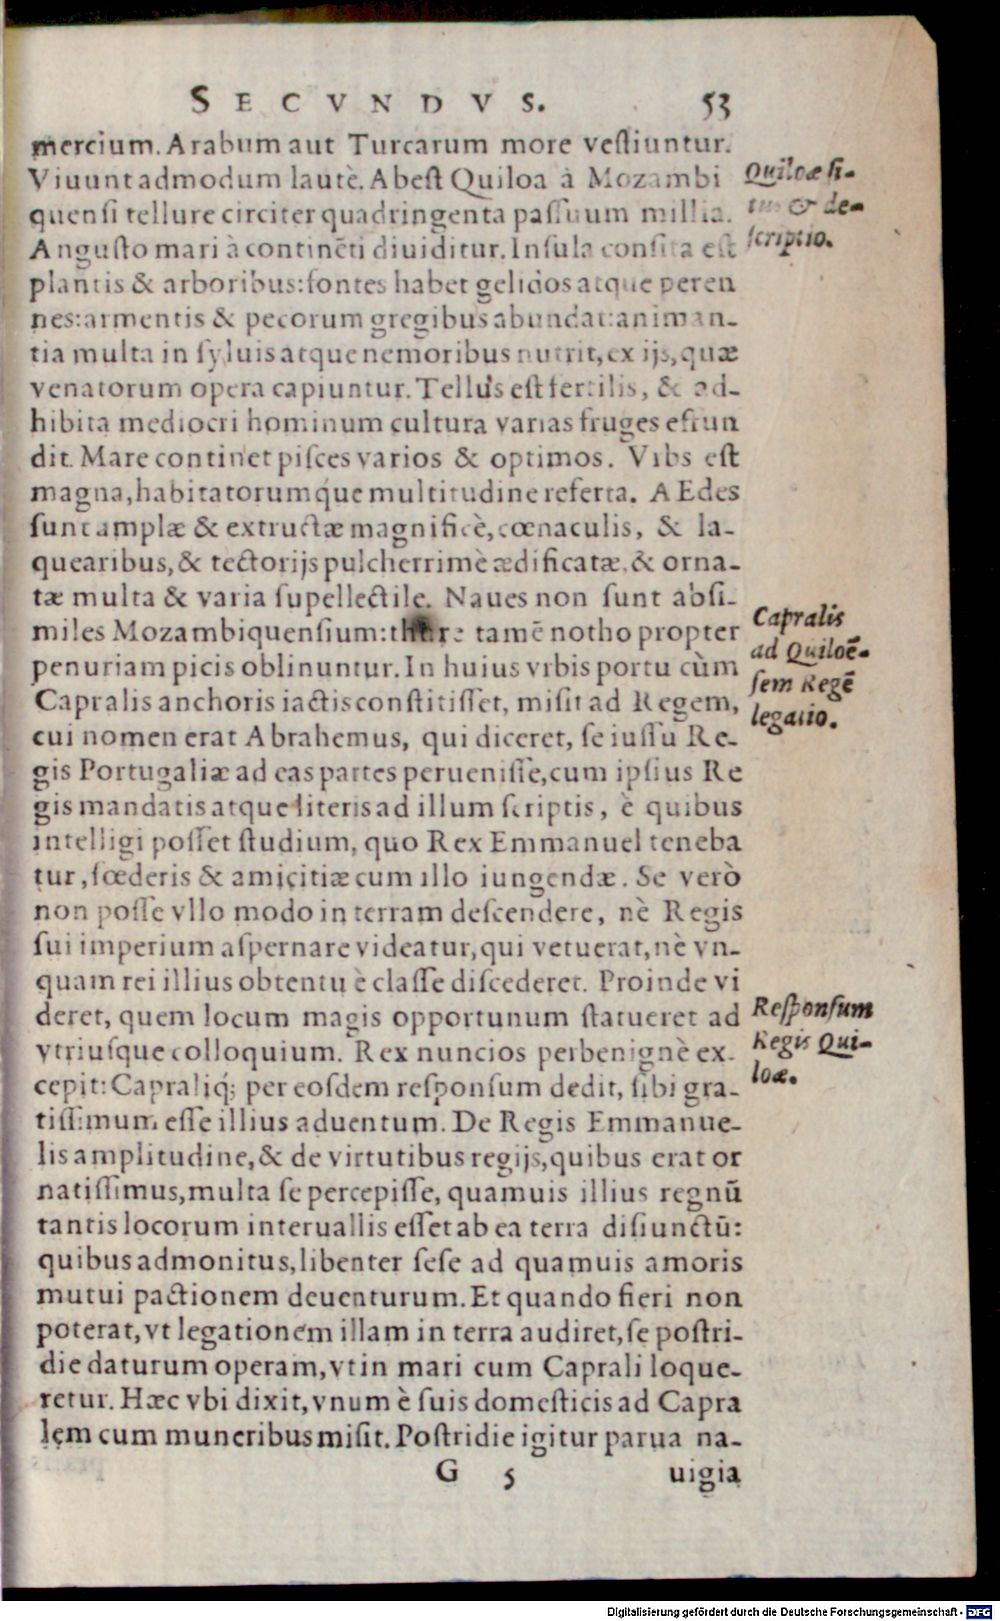 SECVNDVS. 53
mercium. Arabum aut Turcarum more vestiuntur.
Viuunt admodum lautè. Abest Quiloa à Mozambi
quensi tellure circiter quadringenta passuum millia.
Angusto mari à continẽti diuiditur. Insula consita est
plantis & arboribus: fontes habet gelidos atque peren
nes: armentis & pecorum gregibus abundat: animan-
tia multa in syluis atque nemoribus nutrit, ex ijs, quæ
venatorum opera capiuntur. Tellus est fertilis, & ad-
hibita mediocri hominum cultura varias fruges effun
dit. Mare continet pisces varios & optimos. Vrbs est
magna, habitatorumq́ue multitudine referta. AEdes
sunt amplæ & extructæ magnificè, cœnaculis, & la-
quearibus, & tectorijs pulcherrimè ædificatæ, & orna-
tæ multa & varia supellectile. Naues non sunt absi-
miles Mozambiquensium: thure tamẽ notho propter
penuriam picis oblinuntur. In huius vrbis portu cùm
Capralis anchoris iactis constitisset, misit ad Regem,
cui nomen erat Abrahemus, qui diceret, se iussu Re-
gis Portugaliæ ad eas partes peruenisse, cum ipsius Re
gis mandatis atque literis ad illum scriptis, è quibus
intelligi posset studium, quo Rex Emmanuel teneba
tur, fœderis & amicitiæ cum illo iungendæ. Se verò
non posse vllo modo in terram descendere, nè Regis
sui imperium aspernare videatur, qui vetuerat, nè vn-
quam rei illius obtentu è classe discederet. Proinde vi
deret, quem locum magis opportunum statueret ad
vtriusque colloquium. Rex nuncios perbenignè ex-
cepit: Capraliq́; per eosdem responsum dedit, sibi gra-
tissimum esse illius aduentum. De Regis Emmanue-
lis amplitudine, & de virtutibus regijs, quibus erat or
natissimus, multa se percepisse, quamuis illius regnũ
tantis locorum interuallis esset ab ea terra disiunctũ:
quibus admonitus, libenter sese ad quamuis amoris
mutui pactionem deuenturum. Et quando fieri non
poterat, vt legationem illam in terra audiret, se postri-
die daturum operam, vt in mari cum Caprali loque-
retur. Hæc vbi dixit, vnum è suis domesticis ad Capra
lem cum muneribus misit. Postridie igitur parua na-
G 5 uigia
Quiloæ si-
tus & de-
scriptio.
Capralis
ad Quiloẽ-
sem Regẽ
legatio.
Responsum
Regis Qui-
loæ.
Digitalisierung gefördert durch die Deutsche Forschungsgemeinschaft - DFG